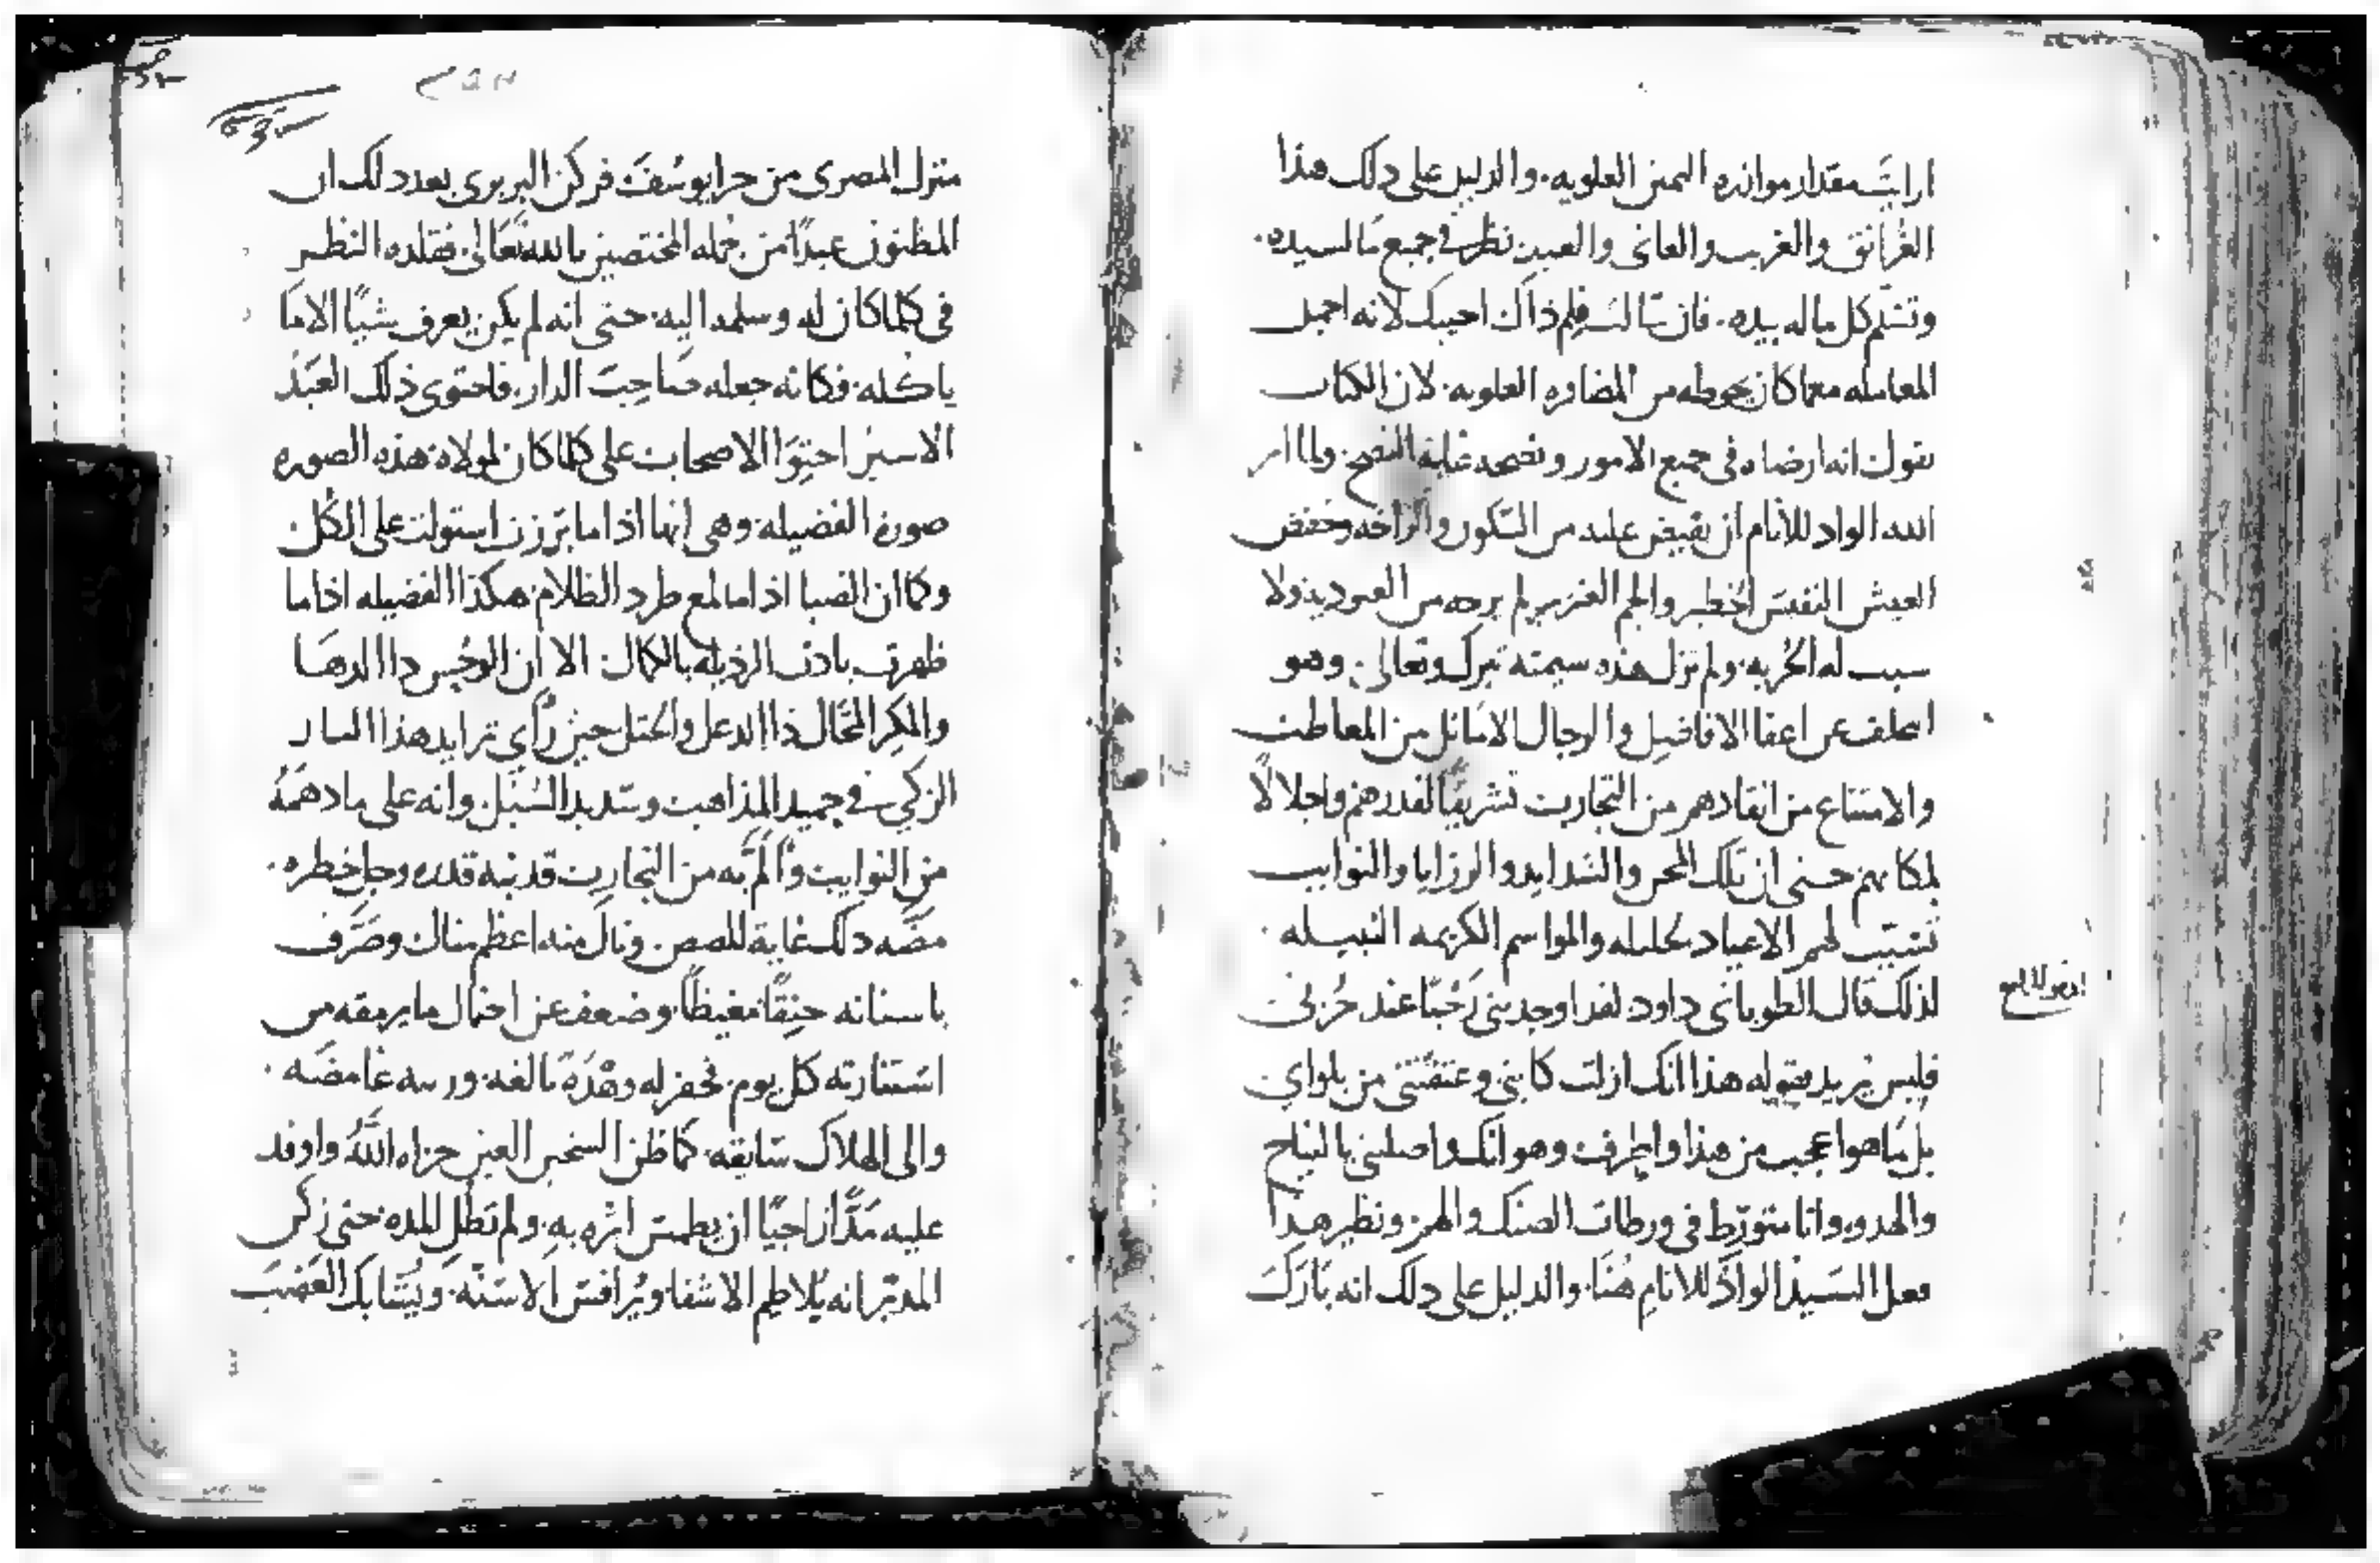 ارايت مقدار موازره اليمين العلويه. والدليل على دلك هذا
الغرانق والغريب والعانى والعبد نظر فى جميع مالسيده.
وتسلم كل ماله بيده. فان سالت فلم ذاك احببك لانه اجمل
المعامله معما كان يحوطه من المضاوره العلويه. لان الكتاب
يقول انه ارضاه فى جميع الامور ونصحه غاية النصح. ولما امر
الله الواد للانام ان يقيض عليه من السكون والراحه وخفض
العيش النفيس الخطير والجم الغزير لم يرحه من العبوديه ولا
سبب له الحريه. ولم تزل هذه سيمته تبرك وتعالى. وهو
اعفا الافاضل والرجال الاماثل من المعاطب
والامتناع من انقادهم من التجارب تشريفًا لقدرهم واجلالًا
لمكانهم حتى ان تلك المحن والشدايد والرزايا والنوايب
تسبب لهم الاعياد الجليله والمواسم الكريمه النبيله.
لذلك قال الطوبانى داود لقد اوجدتنى رحبًا عند حزنى
فليس يريد بقوله هذا انك ازلت كابتى وعتقتنى من بلواي
بل ما هوا عجب من هذا واطرف وهو انك واصلتنى بالنياح
والهدوء وانا متورط فى ورطات الضنك والهم. ونظير هذا
فعل السيد الواد للانام هنا. والدليل على دلك انه بارك
منزل المصرى من جرا يوسف فركن البربرى بعد دلك ان
المظنون عبدًا من جمله المختصين بالله تعالى. فقلده النظر
فى كلما كان له وسلمه اليه. حتى انه لم يكن يعرف شيًا الا ما
ياكله. فكانه جعله صاحب الدار. فاحتوى ذلك العبد
الاسير احتوا الاصحاب على كلما كان لمولاه. هذه الصوره
صورة الفضيله. وهى انها اذا ما برزت استولت على الكل.
وكما ان الضيا اذا ما لمع طرد الظلام. هكذا الفضيله اذا ما
ظهرت بادت الرذيله بالكمال. الا ان الوحش دا الدها
والمكر المحال ذا الدغل والختل حين رأي تزايد هذا البار
الزكي فى حميد المذاهب وسديد السبل. وانه على ما دهمه
من النوايب والم به من التجارب قد نبه قدره وجل خطره.
مضه دلك غاية المضض. ونال منه اعظم منال وصرف
باسنانه حنقًا مغيظًا. وضعف عن احتمال ما يرمقه من
استنارته كل يوم. فحفر له وهدة بالغه. وربيه غامضه.
والى الهلاك سايقه. كما ظن السخين العين جزاه الله واوفد
عليه مدًا راجيًا ان يطمس اثره به. ولم تطل المده حتى زكن
المدبر انه يلاطم الاشفا ويرافس الاسنه. ويشابك الغضب